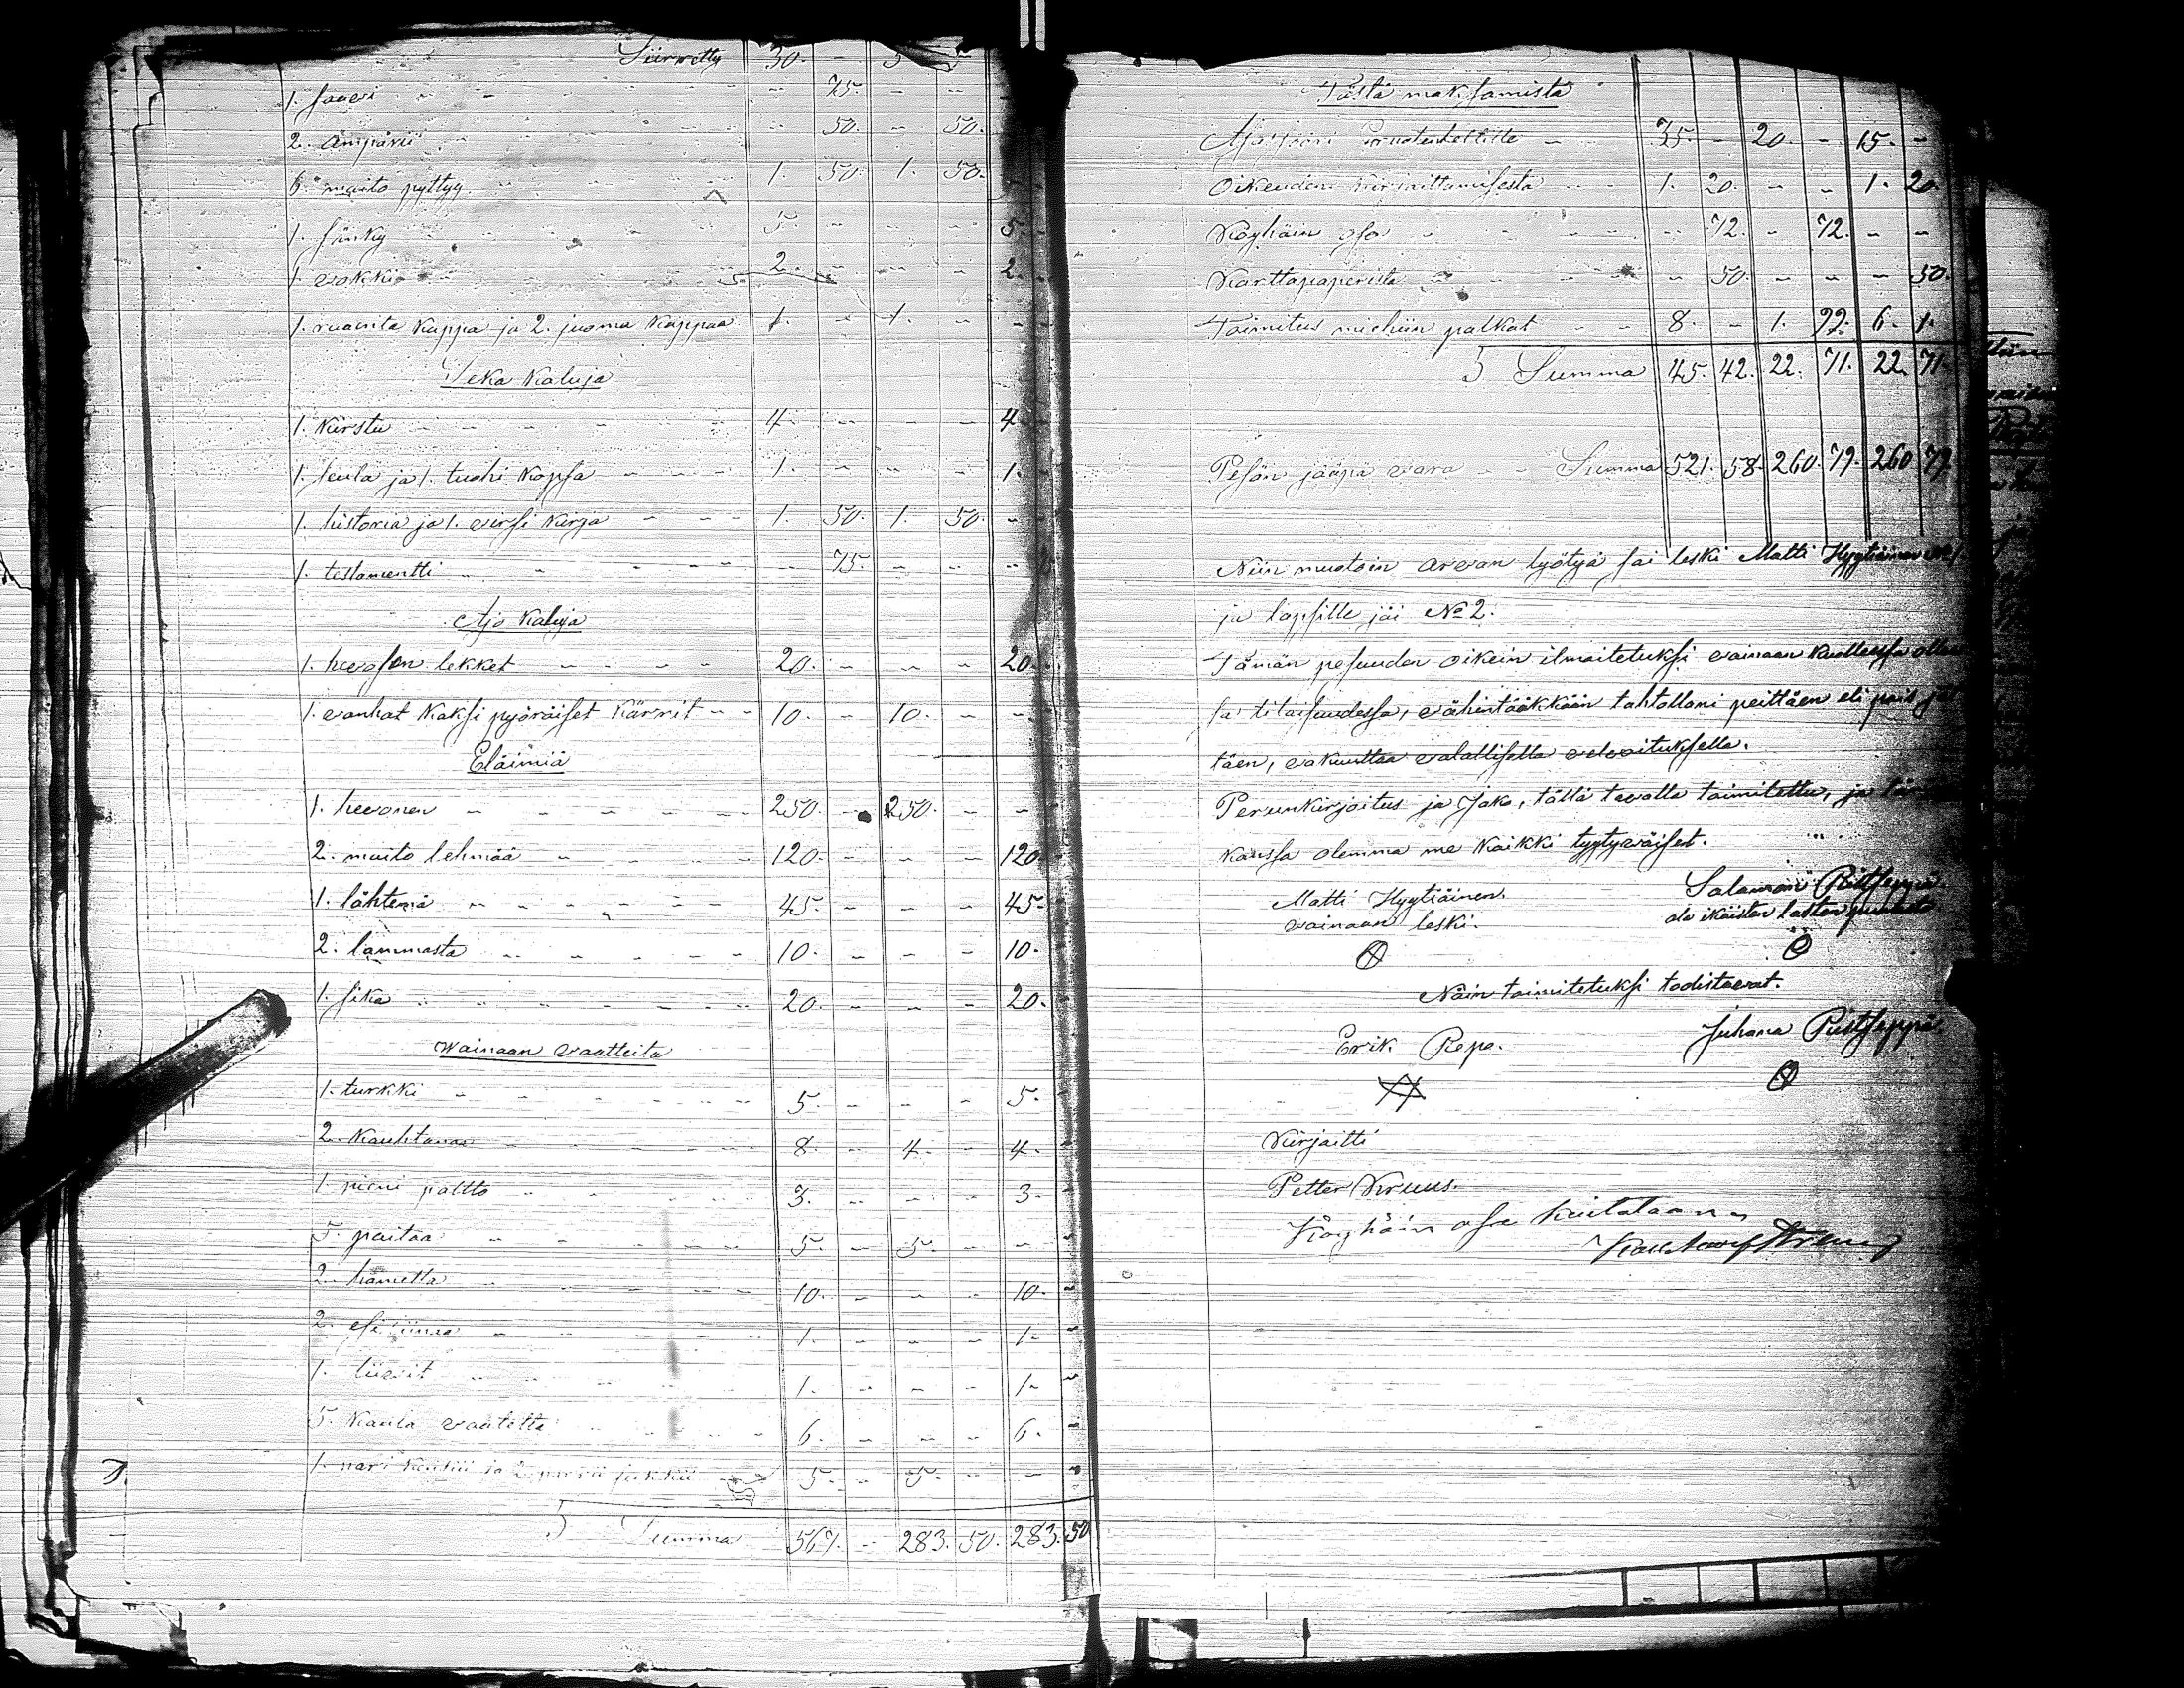 Siirretty 30. - 5
1. saavi - 75. - -
2. ämpärii - 50. - 50.
6. maito pyttyy 1. 50. 1. 50. -
1. sänky 5. - - - 5. -
1. vokki 2. - - - 2. -
1. ruanta kappa ja 2. juoma kappaa 1. - 1. - -
Seka kaluja
1. kirstu 4. - - - 4.
1. seula ja 1. tuohi kopsa 1. - - - 1. -
1. historia ja 1. virsi kirja 1. 50. 1. 50. -
1. testamentti - 75. - - -
Ajo kaluja
1. hevosen lekket 20. - - - 20.
1. vanhat kaksi pyöräiset kärrit 10. - 10. - -
Eläimiä
1. hevonen 250. - 250. - -
2. maito lehmää 120. - - - 120.
1. lähtemä 45. - - - 45.
2. lammasta 10. - - - 10.
1. sika 20. - - - 20.
Wainaan vaatteita
1. turkki 5. - - - 5. -
2. kauhtanaa 8. - 4. - 4. -
1. pieni paltto 3. - - - 3. -
5. paitaa 5. - 5. - - -
2. hametta 10. - - - 10. -
2. esi liinaa 1. - - - 1. -
1. liivit 1. - - - 1. -
5. kaula vaatetta 6. - - - 6. -
1. pari kenkii ja 2. parrii sukkii 5. - 5. - - -
Summa 567. - 283. 50. 283. 50
Tästä maksamista
35. - 20. - 15. -
Oikeuden kirjoittamisesta 1. 20. - - 1. 20
Köyhäin osa - 72. - 72. - -
Karttapaperista - 50. - - - 50.
Toimitus miehiin palkat 8. - 1. 99. 6. 1.
Summa 45. 42. 22. 71. 22. 71.
Pesän jääpä vara - - Summa 521. 58. 260. 79. 260 79
Niin muotoin arvan lyötyä sai leski Matti Hyytiäinen No 1
ja lapsille jäi No 2.
Tämän pesuuden oikein ilmoitetuksi vainaan kuollessa
sa tilaisuudessa, vähintääkkään tahtollani peittäen eli pois
täen, vakuuttaa valallisella velvoituksella.
Perunkirjoitus ja Jako, tällä tavalla toimitettu, ja
kanssa olemma me kaikki tyytyväiset.
Matti Hyytiäinen. Salamon Pistseppä
vainaan leski. ala ikäisten lasten
Näin toimitetuksi todistavat.
Erik Repo. Juhana Pistseppä
Kirjoitti
Petter Kruus.
Köyhäin osa kuitataan